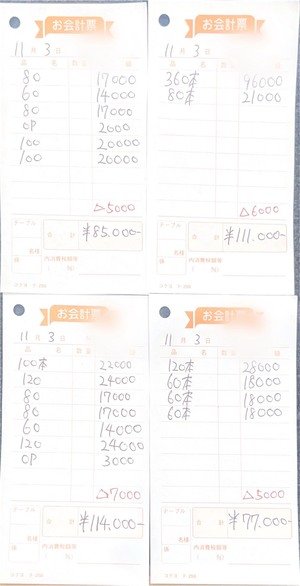 お会計票
11月 3日
品 名 数量 金額
80 17000
60 14000
80 17000
OP 2000
100 20000
100 20000
△5000
テーブル
合計 ¥85.000-
名様
係 内消費税額等
( %)
お会計票
11月 3日
品 名 数量 金額
360本 96000
80本 21000
△6000
テーブル
合計 ¥111.000-
名様
係 内消費税額等
( %)
お会計票
11月 3日
品 名 数量 金額
100本 22000
120 24000
80 17000
80 17000
60 14000
120 24000
OP 3000
△7000
テーブル
合計 ¥114.000-
名様
係 内消費税額等
( %)
お会計票
11月 3日
品 名 数量 金額
120本 28000
60本 18000
60本 18000
60本 18000
△5000
テーブル
合計 ¥77.000-
名様
係 内消費税額等
( %)